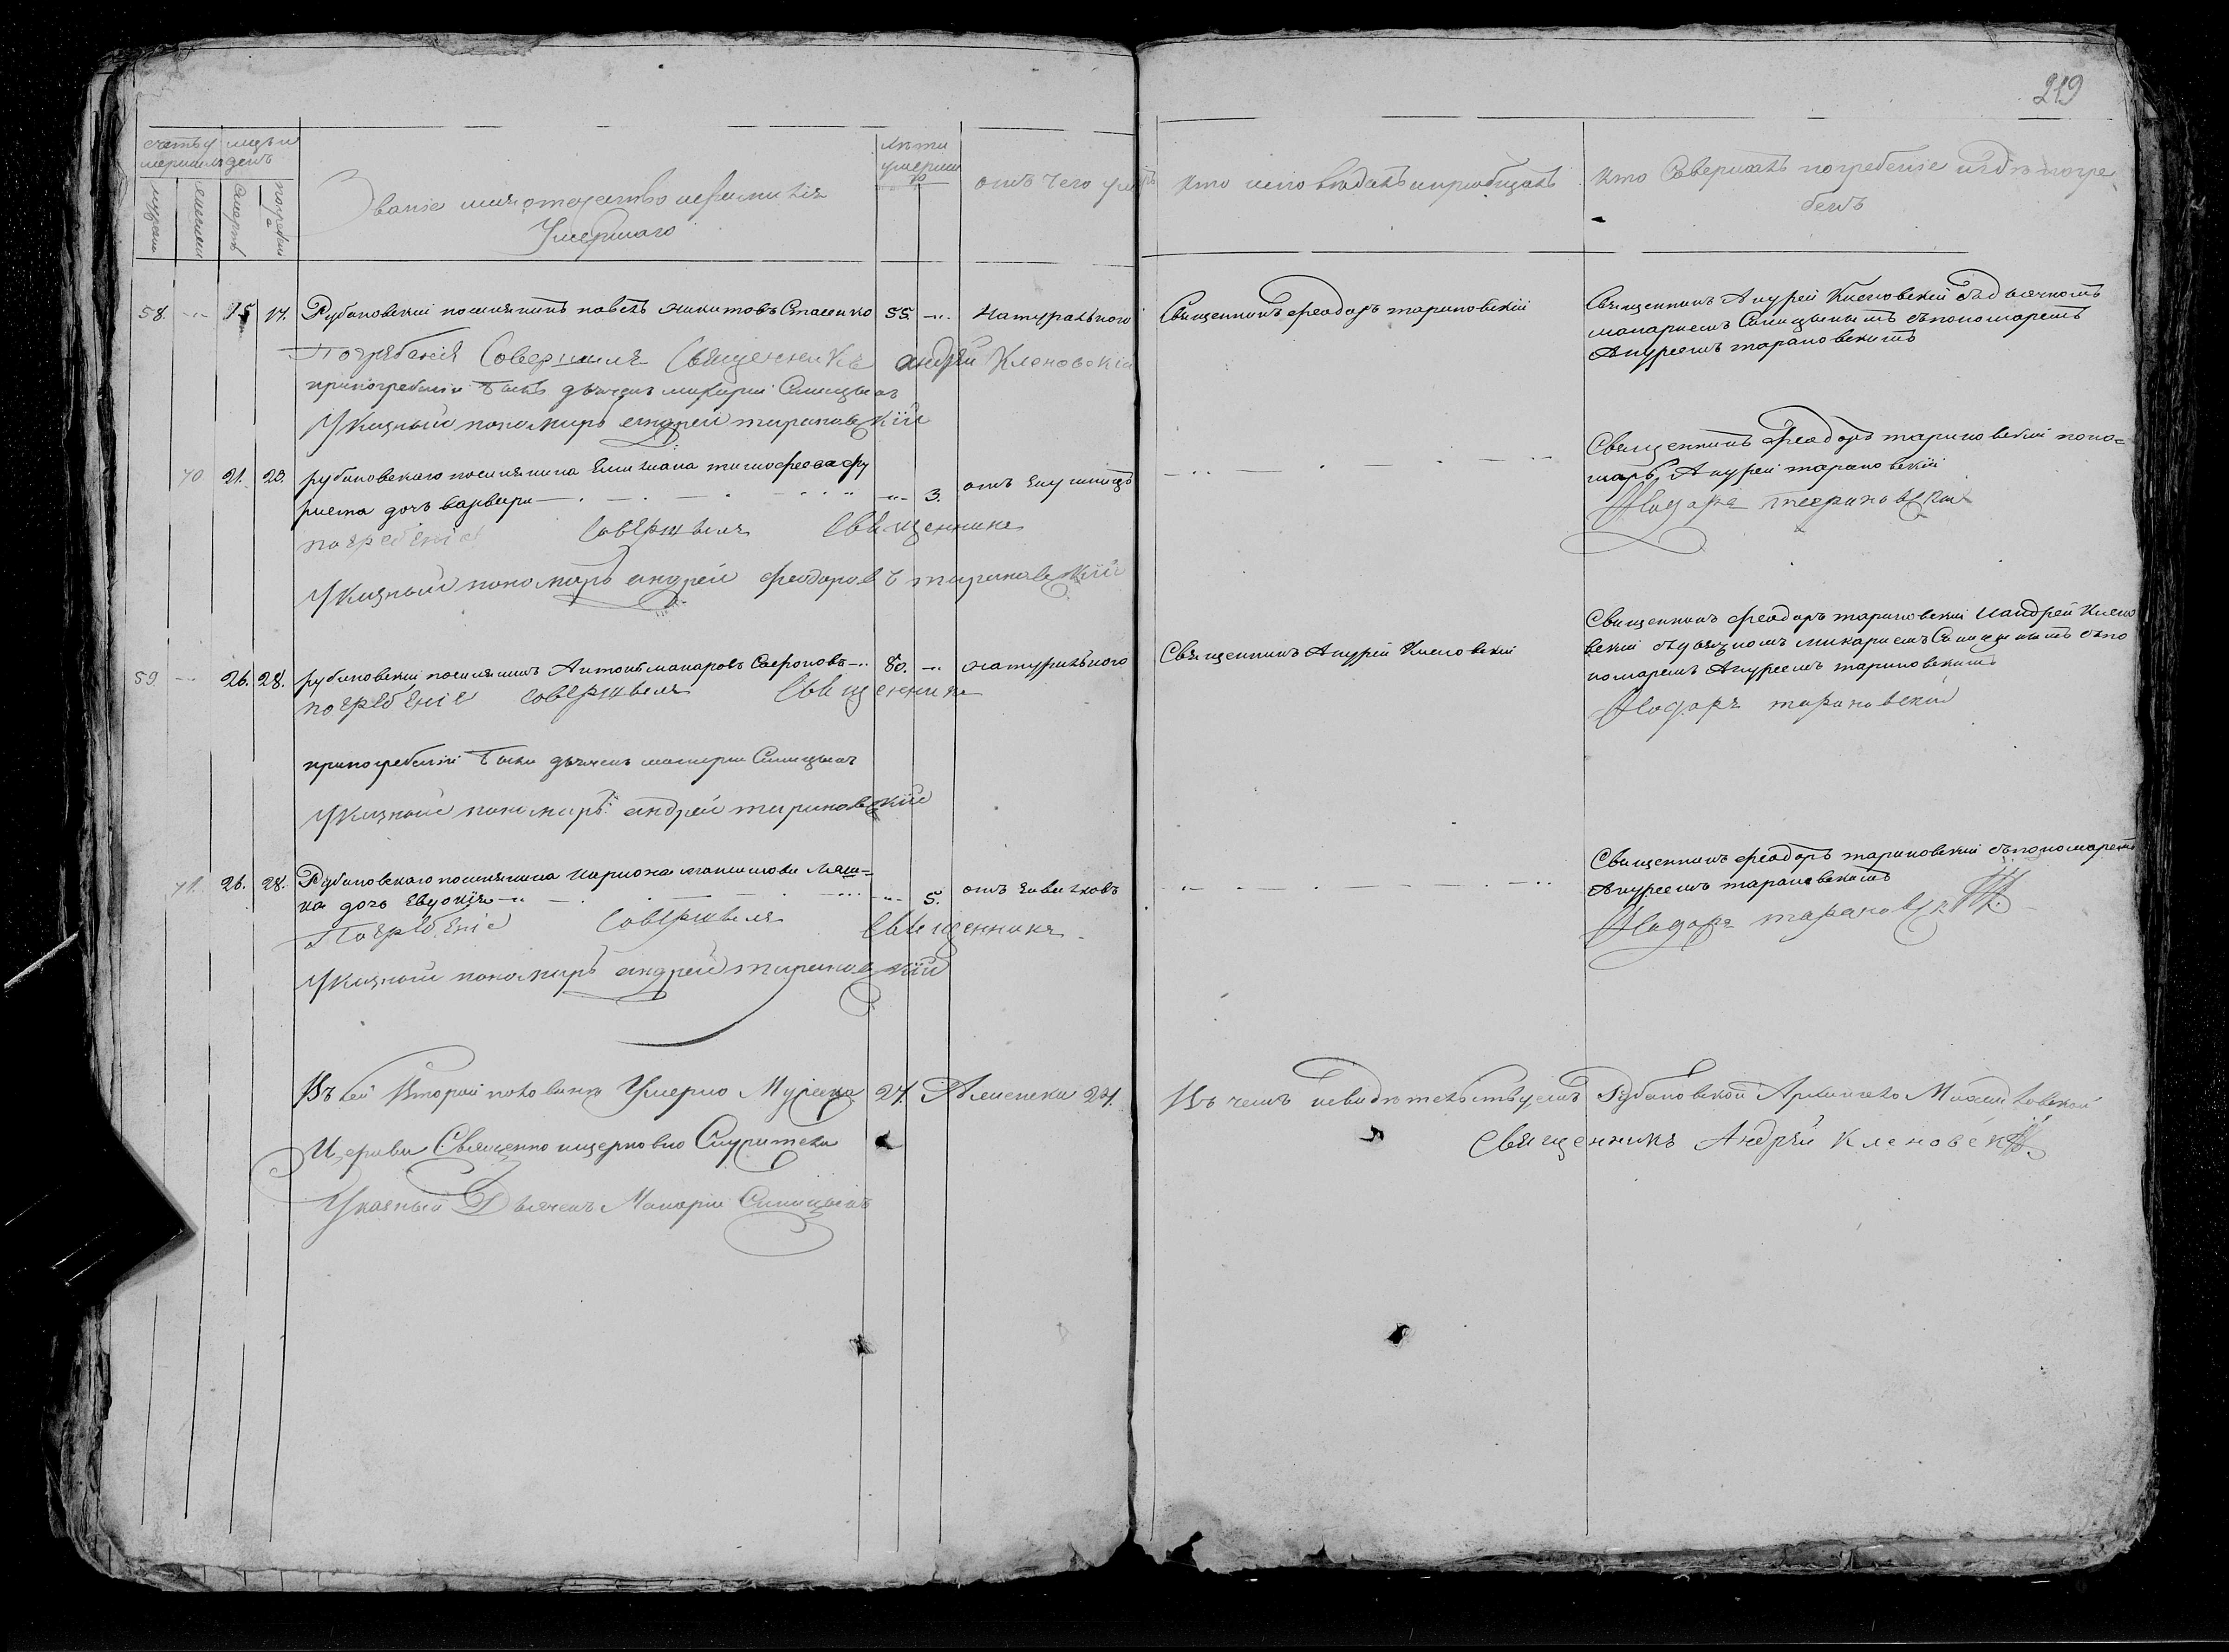 219
счетъ умершихъ
мужеска
женска
месяцъ и день
смерть
погребенія
Званіе имя отечество и фамилія
Умершаго
лѣти умершаго
отъ чего умеръ
кто исповѣдалъ и приобщалъ
кто Совершалъ погребеніе и гдѣ погре
бенъ
58. 15 17. Рубановскій поселянинъ павелъ никитовъ Спасенко 55. натуральнаго
Священникъ феодоръ тарановскій
Священникъ Андрей Кленовскій съ дьячкомъ
макариемъ Синицынымъ съ пономаремъ
Андреемъ тарановскимъ
Погребенія Совершилъ Священникъ андрѣй Кленовскій
при погребеніи былъ дьячекъ макарій Синицынъ
Указный пономарь андрей тарановскій
70 21. 23. рубановскаго поселянина Емилиана тимофеева
дочь варвара 3. отъ
Священникъ Феодоръ тарановскій поно-
марь Андрей тарановскій
погребеніе совершилъ Священникъ
Феодоръ тарановскій
Указный пономарь андрей феодоровъ тарановскій
59 26. 28. рубановскій поселянинъ Антонъ макаровъ Сафроновъ 80. натуральнаго
Священникъ Андрей Кленовскій
Священникъ феодоръ тарановскій и андрей Клено
вскій съ дьячкомъ макариемъ Синицынымъ съ по
номаремъ Андреемъ тарановскимъ
погребеніе совершилъ Священникъ
Феодоръ тарановскій
при погребеніи былъ дьячекъ макарій Синицынъ
Указный пономарь андрей тарановскій
71. 26. 28. Рубановскаго поселянина Илариона максимова Ляш-
ка дочь Евдокія 5. отъ
Священникъ феодоръ тарановскій съ пономаремъ
Андреемъ тарановскимъ
Погребеніе совершилъ Священникъ
Феодоръ тарановскій
Указный пономарь андрей тарановскій
Въ сей Второй половинѣ Умерло Мужеска 27. Женска 24.
Въ чемъ и свидѣтельствуемъ Рубановской Архангело Михайловской
Церкви Священно и церковно Служители
Священникъ Андрѣй Кленовскій
Указный Дьячекъ Макарій Синицынъ